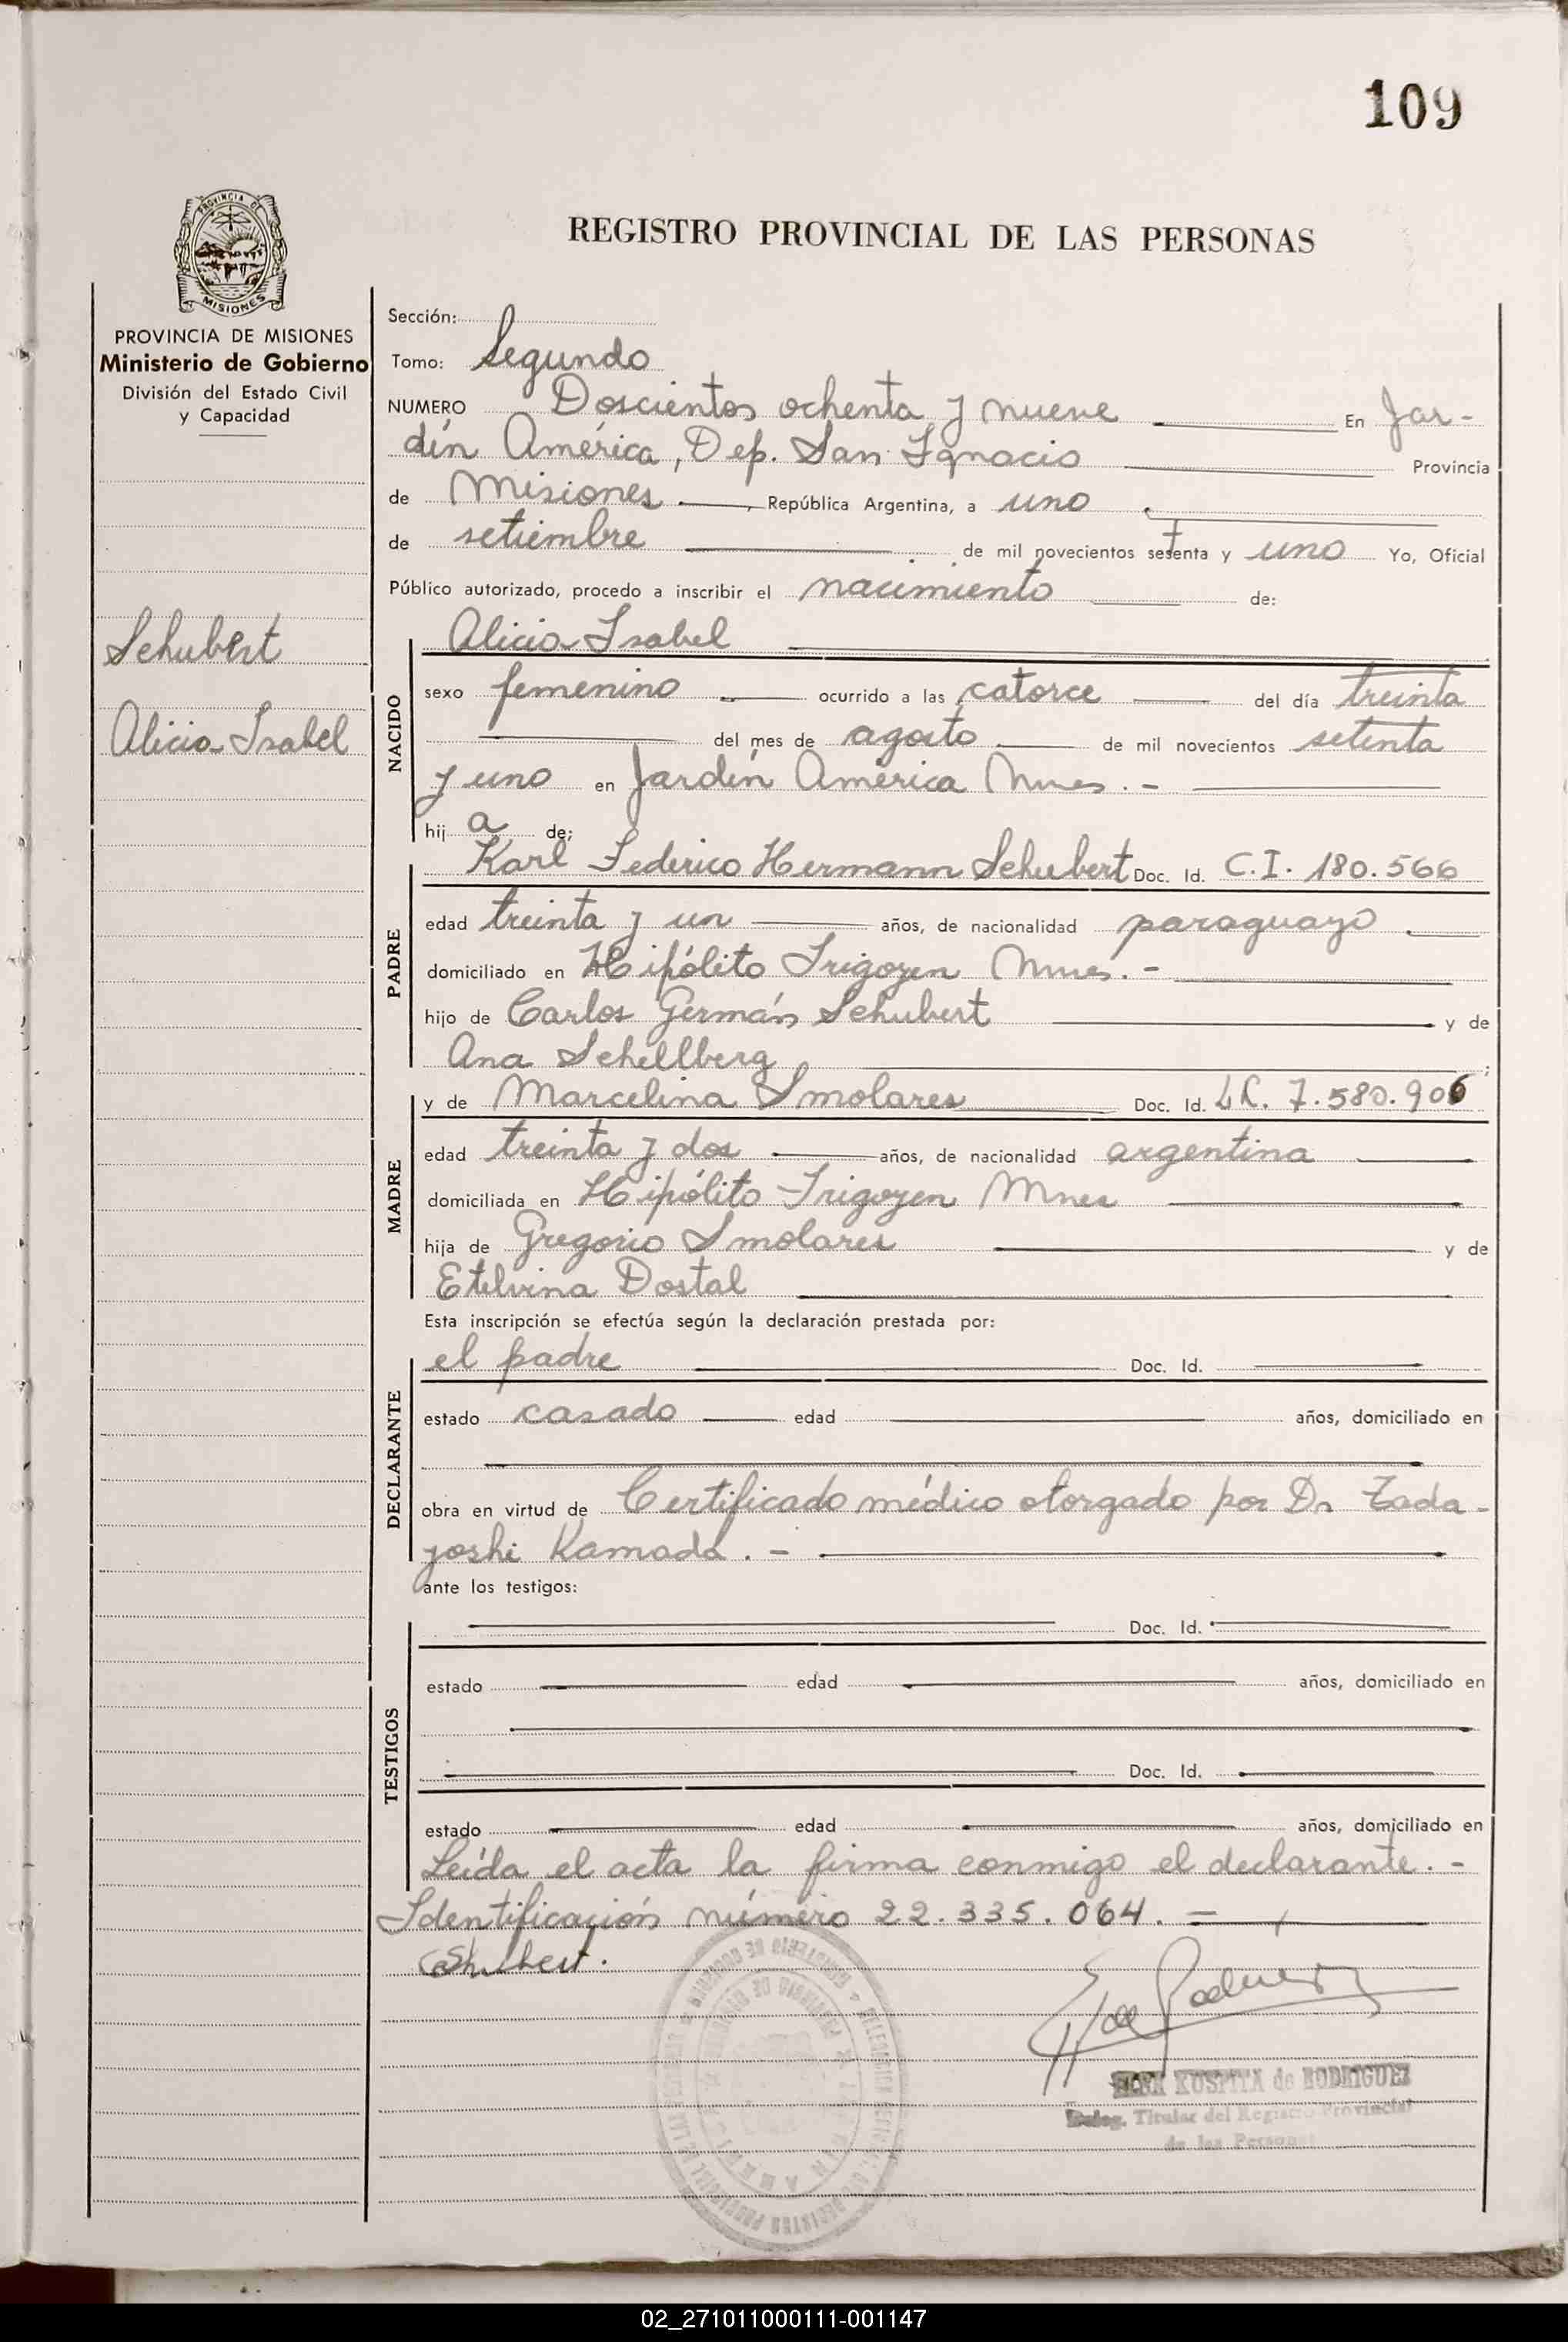 109
PROVINCIA DE
MISIONES
REGISTRO PROVINCIAL DE LAS PERSONAS
PROVINCIA DE MISIONES
Ministerio de Gobierno
División del Estado Civil
y Capacidad
Schubert
Alicia Isabel
Sección:
Tomo: Segundo
NUMERO Doscientos ochenta y nueve En Jar-
dín América, Dep. San Ignacio Provincia
de Misiones, República Argentina, a uno
de setiembre de mil novecientos setenta y uno Yo, Oficial
Público autorizado, procedo a inscribir el nacimiento de:
NACIDO
Alicia Isabel
sexo femenino ocurrido a las catorce del día treinta
del mes de agosto de mil novecientos setenta
y uno en Jardín América Mnes. -
hij a de:
PADRE
Karl Federico Hermann Schubert Doc. Id. C.I. 180.566
edad treinta y un años, de nacionalidad paraguayo
domiciliado en Hipólito Irigoyen Mnes. -
hijo de Carlos Germán Schubert y de
Ana Schellberg ;
MADRE
y de Marcelina Smolares Doc. Id. LC. 7.580.906
edad treinta y dos años, de nacionalidad argentina
domiciliada en Hipólito Irigoyen Mnes
hija de Gregorio Smolares y de
Etelvina Dostal
Esta inscripción se efectúa según la declaración prestada por:
DECLARANTE
el padre Doc. Id.
estado casado edad años, domiciliado en
obra en virtud de Certificado médico otorgado por Dr Tada-
yoshi Kamada. -
ante los testigos:
TESTIGOS
Doc. Id.
estado edad años, domiciliado en
Doc. Id.
estado edad años, domiciliado en
Leída el acta la firma conmigo el declarante. -
Identificación número 22.335.064. -
Schubert.
KUSPITA de RODRIGUEZ
Deleg. Titular del Registro Provincial
de las Personas
02_271011000111-001147